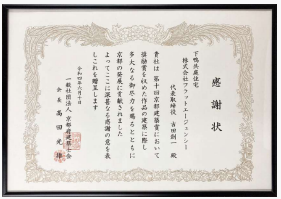 感謝状
下鴨共庭住宅
株式会社フラットエージェンシー
代表取締役 吉田創一 殿
貴社は第十回京都建築賞において
奨励賞を収めた作品の建築に際し
多大なる御尽力を賜るとともに
京都の発展に貢献されました
よってここに深甚なる感謝の意を表
しこれを贈呈します
令和四年六月十日
一般社団法人 京都府建築士会
会長 髙田光雄